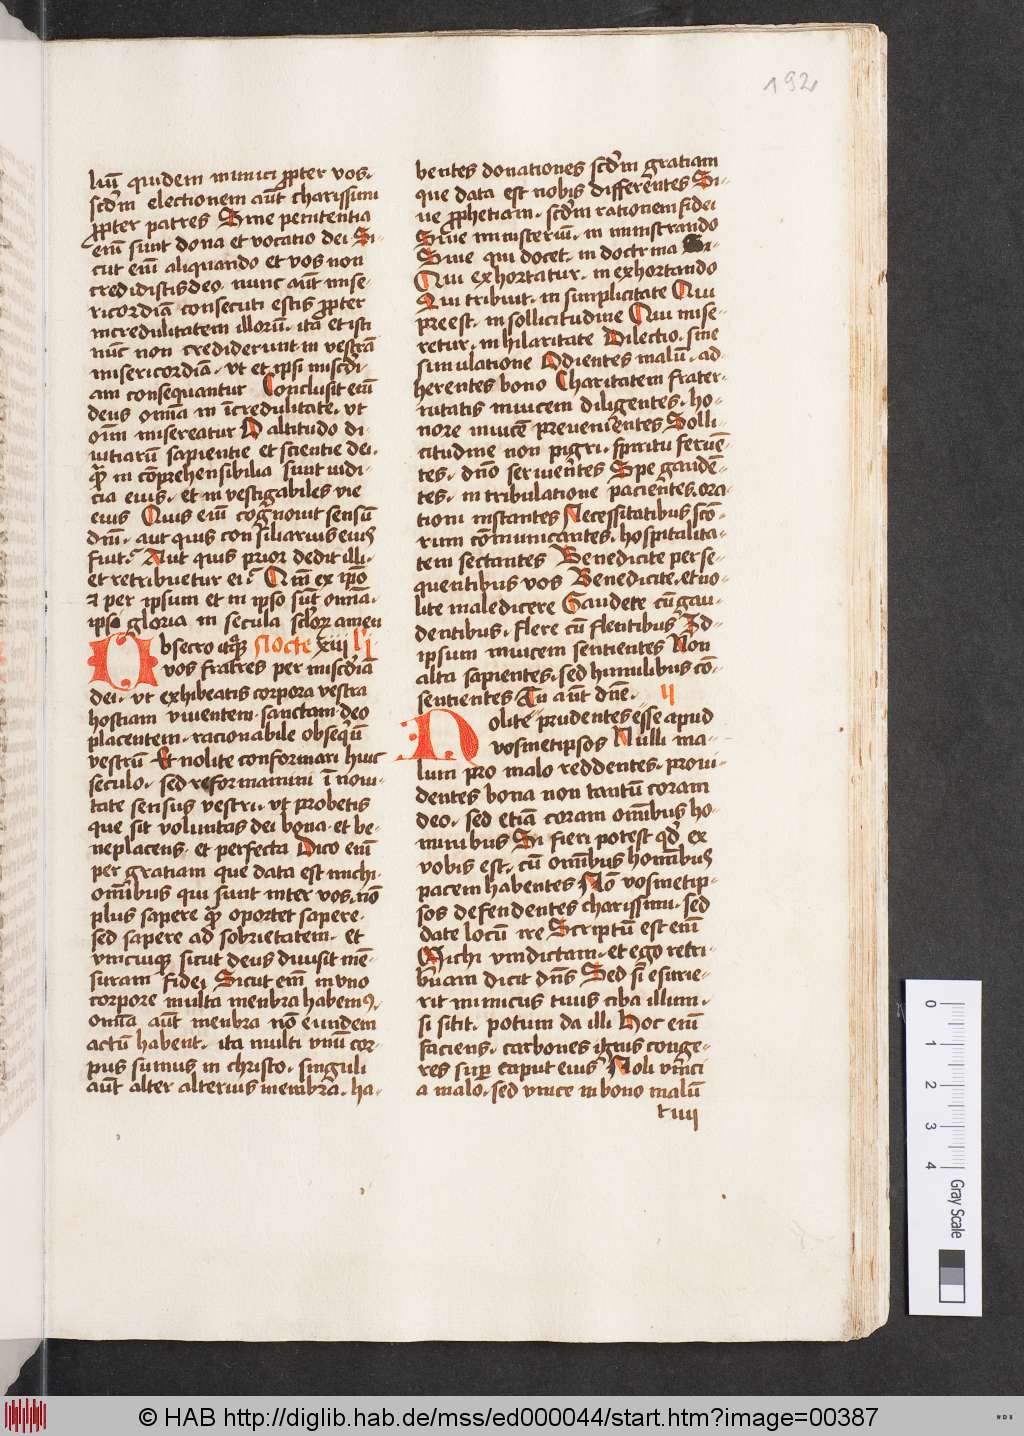 192
liū quidem inimici ꝓpter vos·
scd̄m electionem aūt charissimi
ꝓpter patres Sine penitentia
em̄ sunt dona et vocatio dei Si-
cut em̄ aliquando et vos non
credidistis deo· nunc aūt mise-
ricordiā consecuti estis ꝓpter
incredulitatem illorū· ita et isti
nūc non crediderunt in vestrā
misericordiā· vt et ipsi mis̄cdi-
am consequantur Conclusit em̄
deus oīna in īcredulitate· vt
oīm misereatur O altitudo di-
uitiarū sapientie et scientie dei·
q̄ȝ in cōprehensibilia sunt iudi-
cia eius· et in vestigabiles vie
eius Quis em̄ cognouit sensū
dn̄i· aut quis consiliarius eius
fuit· Aut quis prior dedit illi·
et retribuetur ei· Qm̄ ex ipō
⁊ per ipsum et in ipso sūt oīna·
ipsi gloria in secula sclorꝝ amen
Obsecro itqȝ Nocte xiii li·
vos fratres per mis̄cdiā
dei· vt exhibeatis corpora vestra
hostiam viuentem· sanctam· deo
placentem· racionabile obseqūū
vestrū Et nolite conformari huic
seculo· sed reformamini ī noui-
tate sensus vestri· vt probetis
que sit voluntas dei bona· et be-
neplacens· et perfecta Dico em̄
per gratiam que data est michi·
oīnibus qui sunt inter vos· nō
plus sapere q̄ȝ oportet sapere·
sed sapere ad sobrietatem· et
vnicuiqȝ sicut deus diuisit mē-
suram fidei Sicut em̄ in vno
corpore multa menbra habemꝰ·
oīna aūt menbra nō eundem
actū habent· ita multi vnū cor-
pus sumus in christo· singuli
aūt alter alterius membra· ha-
bentes donationes scd̄m gratiam
que data est nobis differentes Si-
ue ꝓphetiam· scd̄m rationem fidei
Siue ministeriū· in ministrando
Siue qui docet· in doctrina
Qui exhortatur· in exhortando
Qui tribuit· in simplicitate Qui
preest· in sollicitudine Qui mise-
retur· in hilaritate Dilectio· sine
simulatione Odientes malū· ad-
herentes bono Charitatem frater-
nitatis inuicem diligentes· ho-
nore inuicē preuenientes Solli-
citudine non pigri· spiritu feruē-
tes· dn̄o seruientes Spe gaudē-
tes· in tribulatione pacientes· ora-
tioni instantes Necessitatibus scō-
rum cōmunicantes· hospitalita-
tem sectantes Benedicite perse-
quentibus vos Benedicite· et no-
lite maledicere Gaudete cū gau-
dentibus· flere cū flentibus Id-
ipsum inuicem sentientes Non
alta sapientes· sed humilibus cō-
sentientes Tu aūt dn̄e· ii
Nolite prudentes esse apud
vosmetipsos Nulli ma-
lum pro malo reddentes· proui-
dentes bona non tantū coram
deo· sed etiā coram oīnibus ho-
minibus Si fieri potest qd̄ ex
vobis est· cū oīnibus hoīnibus
pacem habentes Nō vosmetip-
sos defendentes charissimi· sed
date locū ire Scriptū est em̄
Michi vindictam· et ego retri-
buam dicit dn̄s Sed si esurie-
rit inimicus tuus ciba illum·
si sitit· potum da illi Hoc em̄
faciens· carbones ignis conge-
res sup caput eius Noli vīnci
a malo· sed vince in bono malū
t iiii
0 1 2 3 4 Gray Scale
© HAB http://diglib.hab.de/mss/ed000044/start.htm?image=00387